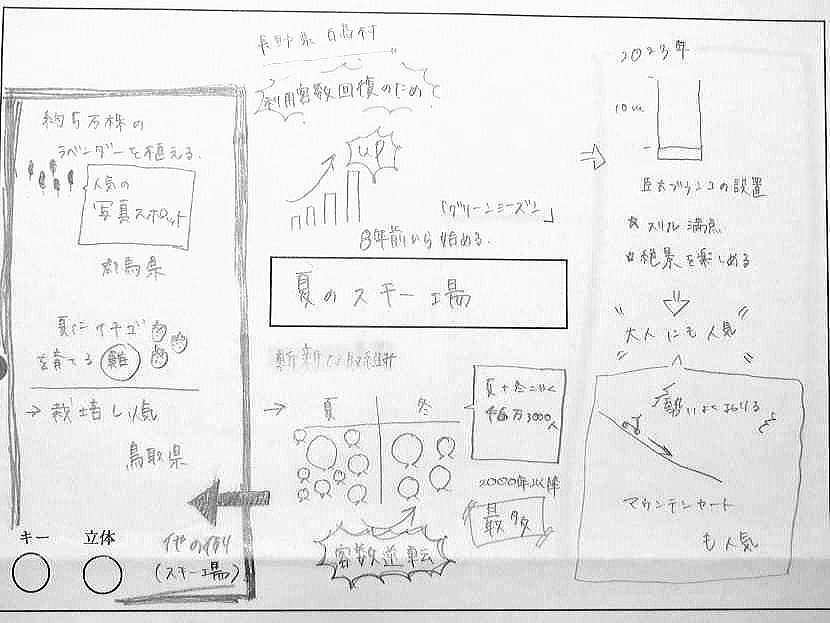 長野県 白馬村
利用客数回復のため
up
「グリーンシーズン」
8年前から始める.
夏のスキー場
斬新な取組
夏 冬
夏+冬
46万3000人
2000年以降
最多
客数逆転
約5万株の
ラベンダーを植える.
人気の
写真スポット
群馬県
夏にイチゴ
を育てる 難
→ 栽培し人気
鳥取県
キー 立体
他の例
(スキー場)
2023年
10m
巨大ブランコの設置
☆ スリル満点
☆ 絶景を楽しめる
"大人にも人気"
勢いよくおりる
マウンテンカート
も人気